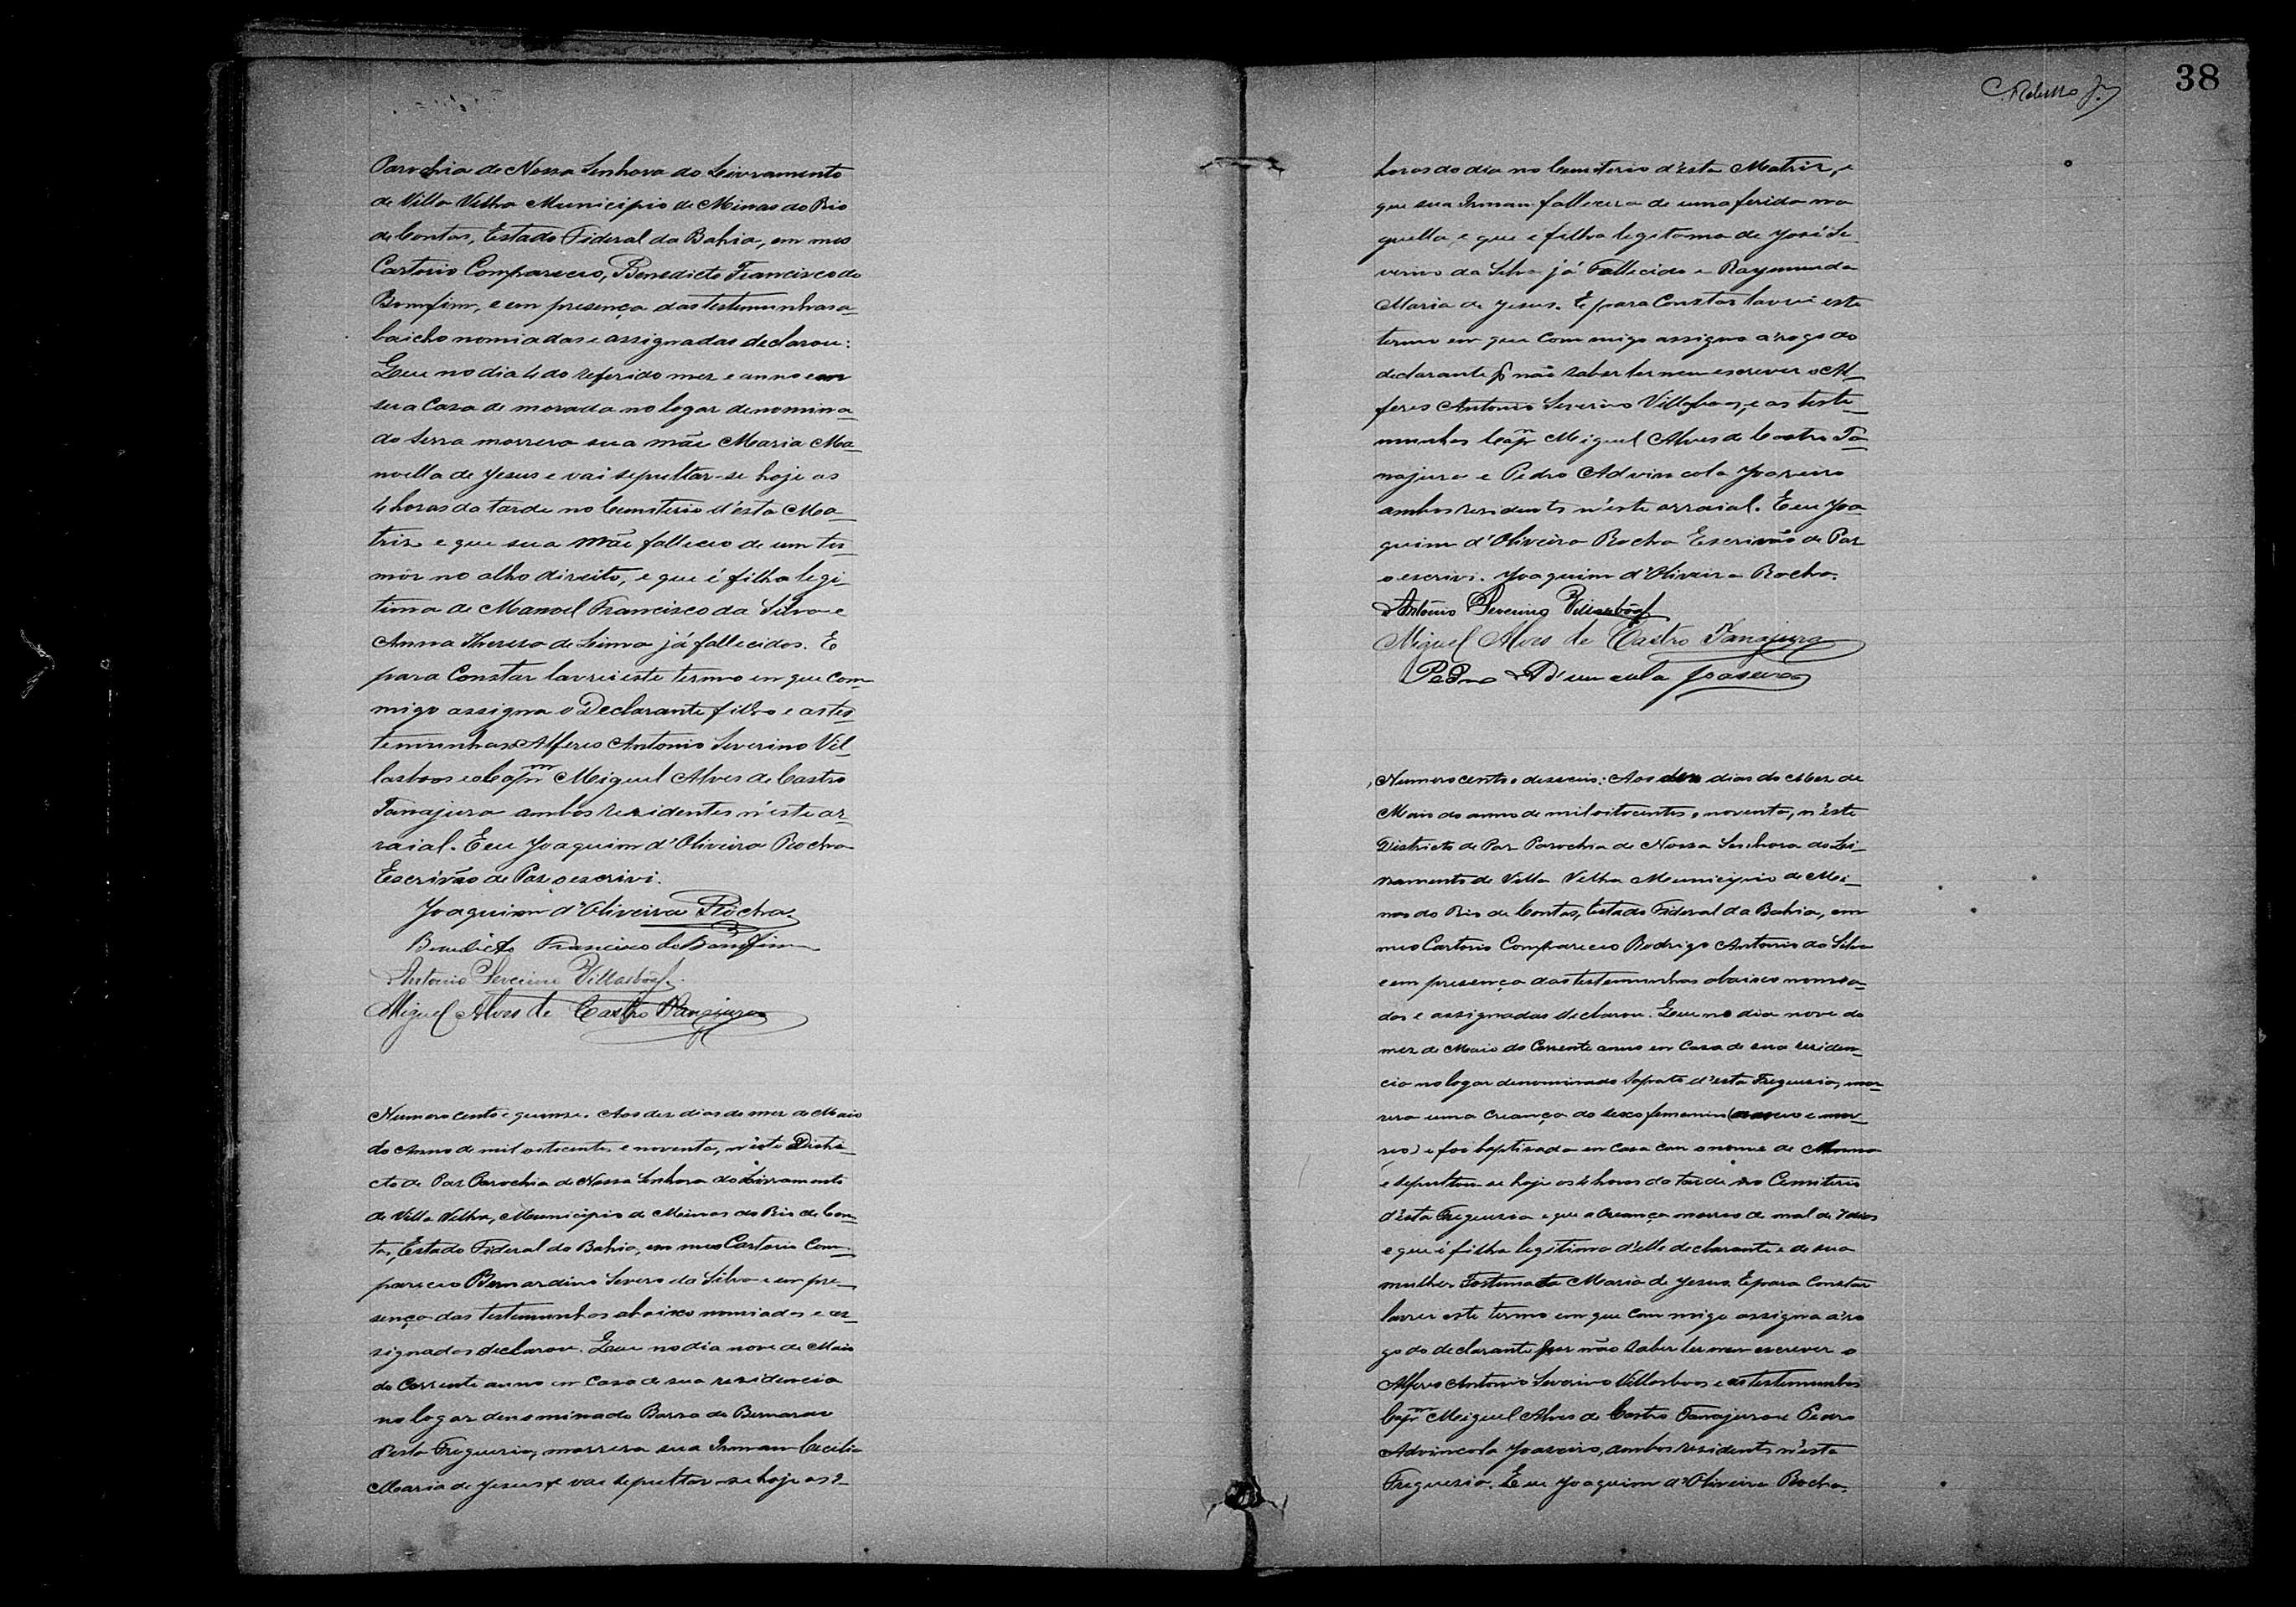 Parochia de Nossa Senhora do Livramento
de Villa Velha Municipio de Minas do Rio
de Contas, Estado Fideral da Bahia, em meo
Cartorio Compareceo, Benedicto Francisco do
Bomfim, e em presença das testemunhas a-
baicho nomiadas e assignadas declarou:
Que no dia 4 do referido mez e anno em
sua Casa de morada no logar denomina-
do Serra morrera sua mãe Maria Ma-
noella de Jesus e vai sepultar-se hoje as
4 horas da tarde no Cemiterio d'esta Ma-
triz e que sua Mãe falleceo de um tu-
môr no olho direito, e que é filha legi-
tima de Manoel Francisco da Silva e
Anna Thereza de Lima já fallecidos. E
para Constar lavrei este termo em que com
migo assigna o Declarante filho e as tes-
temunhas Alferes Antonio Severino Vil-
lasboas e o Capm Miguel Alves de Castro
Tanajura ambos rezidentes n'este ar-
raial. E eu Joaquim d'Oliveira Rocha
Escrivão de Paz o escrivi.
Joaquim d'Oliveira Rocha
Benedicto Francisco do Bomfim
Antonio Severino Villasboas
Miguel Alves de Castro Tanajura
Numero cento e quinze. Aos dez dias do mez de Maio
do Anno de mil oitocentos e noventa, n'este Distri-
cto de Paz Parochia de Nossa Senhora do Livramento
de Villa Velha, Municipio de Minas do Rio de Con-
tas, Estado Fideral da Bahia, em meo Cartorio Com-
pareceo Bernardino Severo da Silva e em pre-
sença das testemunhas abaixo nomiadas e as-
signadas declarou. Que no dia nove de Maio
do Corrente anno em Casa de sua residencia
no logar denominado Barra do Bernardo
desta Freguezia, morrera sua Irman Cecilia
Maria de Jesus e vae sepultar-se hoje as 2-
C. Rebello Jr
38
horas do dia no Cemiterio d'esta Matriz, e
que sua Irman fallecera de uma ferida na
guella, e que e filha legitama de José Se-
verino da Silva já Fallecido e Raymunda
Maria de Jesus. E para Constar lavrei este
termo em que Com migo assigna a rogo do
declarante p não saber ler nem escrever o Al-
feres Antonio Severino Villasboas, e as teste-
munhas Capm Miguel Alves de Castro Ta-
najura e Pedro Advincola Joazeiro
ambos residents n'este arraial. E eu Joa-
quim d'Oliveira Rocha Escrivão de Paz
o escrivi. Joaquim d'Oliveira Rocha.
Antonio Severino Villasboas
Miguel Alves de Castro Tanajura
Pedro Joaseiro
Numero cento e deseceis: Aos dez dias do Mez de
Maio do anno de mil oitocentos e noventa, n'este
Districto de Paz Parochia de Nossa Senhora do Li-
vramento de Villa Velha Municipio de Mi-
nas do Rio de Contas, Estado Fideral da Bahia, em
meo Cartorio Compareceo Rodrigo Antonio da Silva
e em presença das testemunhas abaixo nomia-
das e assignadas declarou. Que no dia nove do
mez de Maio do Corrente anno em Casa de sua residen-
cia no logar denominado Sapato d'esta Freguezia, mor-
rera uma Criança do sexo femenino (nasceo e mor-
reo) e foi baptisada em casa com o nome de
e sepultou-se hoje as 4 horas da tarde no Cemiterio
d'esta Freguezia e que a Creança morreo de mal de 7 dias
e que é filha legitima d'elle declarante e de sua
mulher Fortunata Maria de Jesus. E para Constar
lavrei este termo em que Com migo assigna a ro
go do declarante por não saber ler nem escrever o
Alferes Antonio Severino Villasboas e as testemunhas
Capm Miguel Alves de Castro Tanajura e Pedro
Advincola Joazeiro, ambos residents n'esta
Freguezia. E eu Joaquim d'Oliveira Rocha.